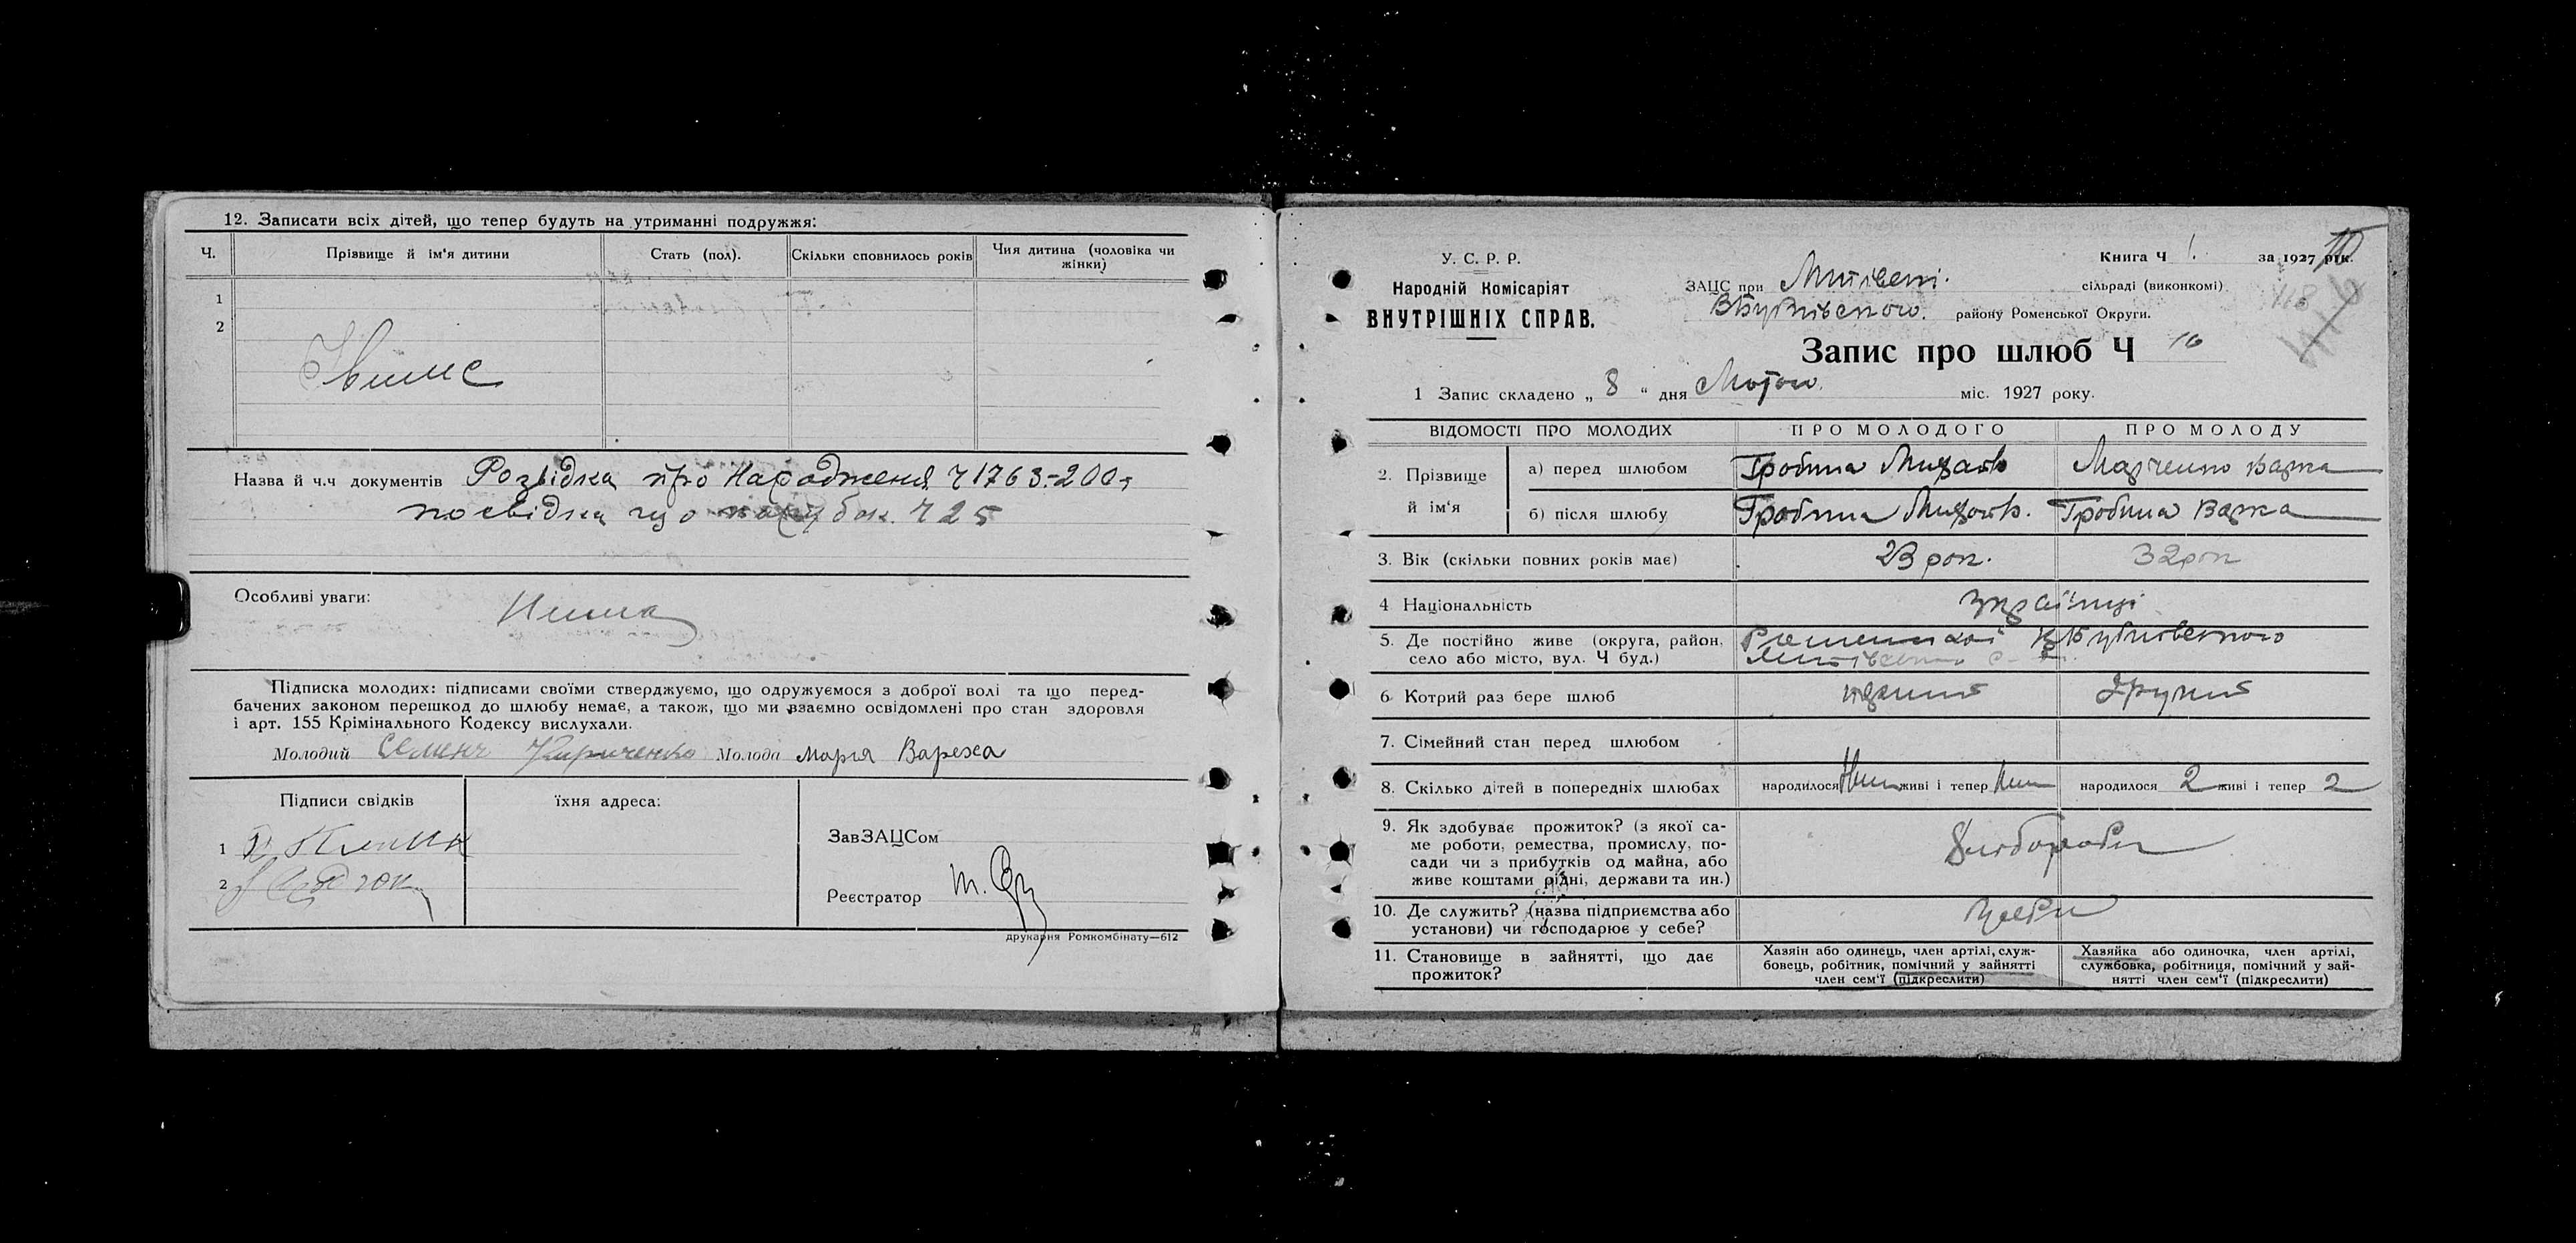 12. Записати всіх дітей, що тепер будуть на утриманні подружжя:
Ч. Прізвище й ім'я дитини Стать (пол). Скільки сповнилось років Чия дитина (чоловіка чи жінки)
1
2
Назва й ч.ч документів Розвідка про Народженя Ч 1763-200
посвідка що парубок Ч 25
Особливі уваги: Нима
Підписка молодих: підписами своїми стверджуємо, що одружуємося з доброї волі та що перед-
бачених законом перешкод до шлюбу немає, а також, що ми взаємно освідомлені про стан здоровля
і арт. 155 Крімінального Кодексу вислухали.
Молодий Семен Кириченко Молода Марія Вареха
Підписи свідків їхня адреса:
ЗавЗАЦСом
1
2
Реєстратор
друкарня Ромкомбінату—612
У. С. Р. Р.
Народній Комісаріят
ВНУТРІШНІХ СПРАВ.
Книга Ч 1 за 1927 рік.
ЗАЦС при сільраді (виконкомі)
району Роменської Округи.
118
Запис про шлюб Ч 10
1 Запис складено „ 8 " дня Лютого міс. 1927 року.
ВІДОМОСТІ ПРО МОЛОДИХ ПРО МОЛОДОГО ПРО МОЛОДУ
2. Прізвище й ім'я
а) перед шлюбом Гробина Михайло Марченко Варка
б) після шлюбу Гробина Михайло Гробина Варка
3. Вік (скільки повних років має) 23 рок. 32 рок
4 Національність українці
5. Де постійно живе (округа, район,
село або місто, вул. Ч буд.) Роменської
6 Котрий раз бере шлюб перший другий
7. Сімейний стан перед шлюбом
8. Скілько дітей в попередніх шлюбах народилося Нима живі і тепер Нима народилося 2 живі і тепер 2
9. Як здобуває прожиток? (з якої са-
ме роботи, ремества, промислу, по-
сади чи з прибутків од майна, або
живе коштами рідні, держави та ин.)
хлібороби
10. Де служить? (назва підприємства або
установи) чи господарює у себе?
у себе
11. Становище в зайнятті, що дає
прожиток?
Хазяїн або одинець, член артілі, служ-
бовець, робітник, помічний у зайнятті
член сем'ї (підкреслити)
Хазяйка або одиночка, член артілі,
службовка, робітниця, помічний у зай-
нятті член сем'ї (підкреслити)